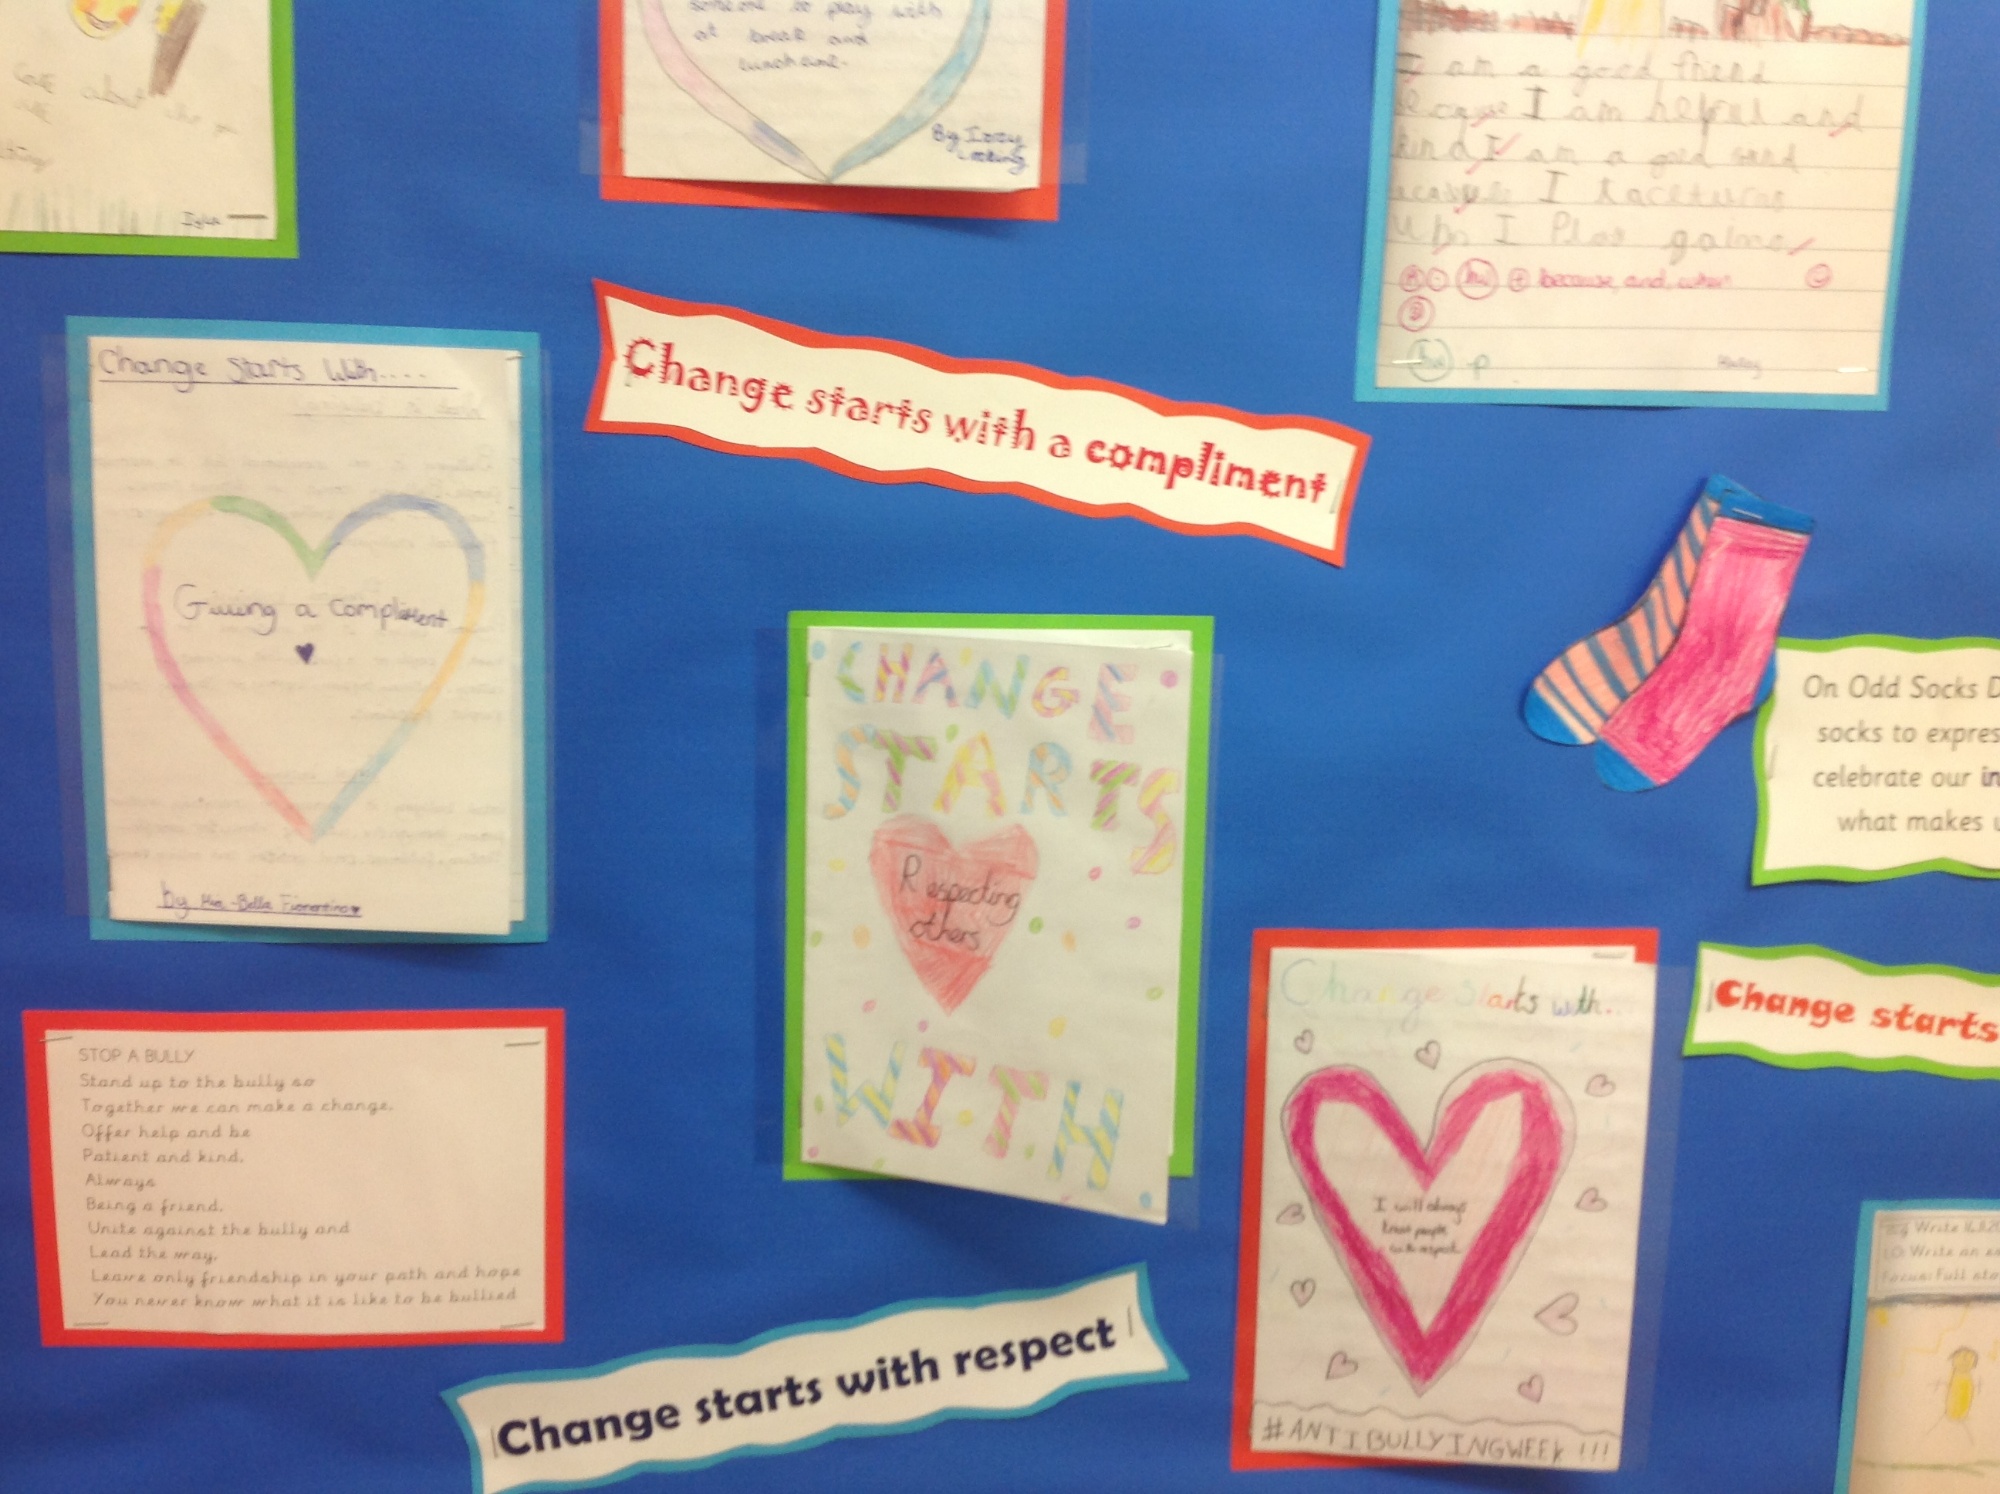 about
Iyla
someone to play with
at break and
lunchtime.
By Izzy
I am a good friend
Because I am helpful and
kind I am a good
I
I Play
because, and, when
Change starts with a compliment
Change Starts With....
Giving a Compliment
by Mia-Bella Fiorentino
CHANGE
STARTS
Respecting
others
WITH
On Odd Socks D
socks to expres
celebrate our in
what makes u
Change starts
STOP A BULLY
Stand up to the bully so
Together we can make a change.
Offer help and be
Patient and kind.
Always
Being a friend.
Unite against the bully and
Lead the way.
Leave only friendship in your path and hope
You never know what it is like to be bullied
Change starts with respect
Change starts with...
I will always
treat people
with respect
#ANTIBULLYINGWEEK !!!
Write
LO: Write an
Focus: Full sto